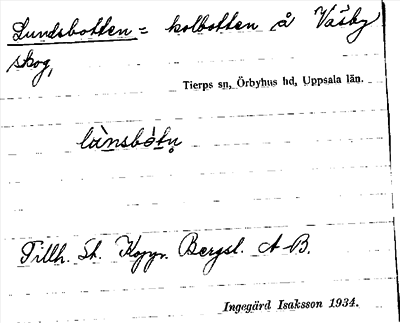 Lundsbotten = kolbotten å Väsby
skog,
Tierps sn, Örbyhus hd, Uppsala län.
lùnsbótn̥
Tillh. St. Koppr. Bergsl. A B.
Ingegärd Isaksson 1934.